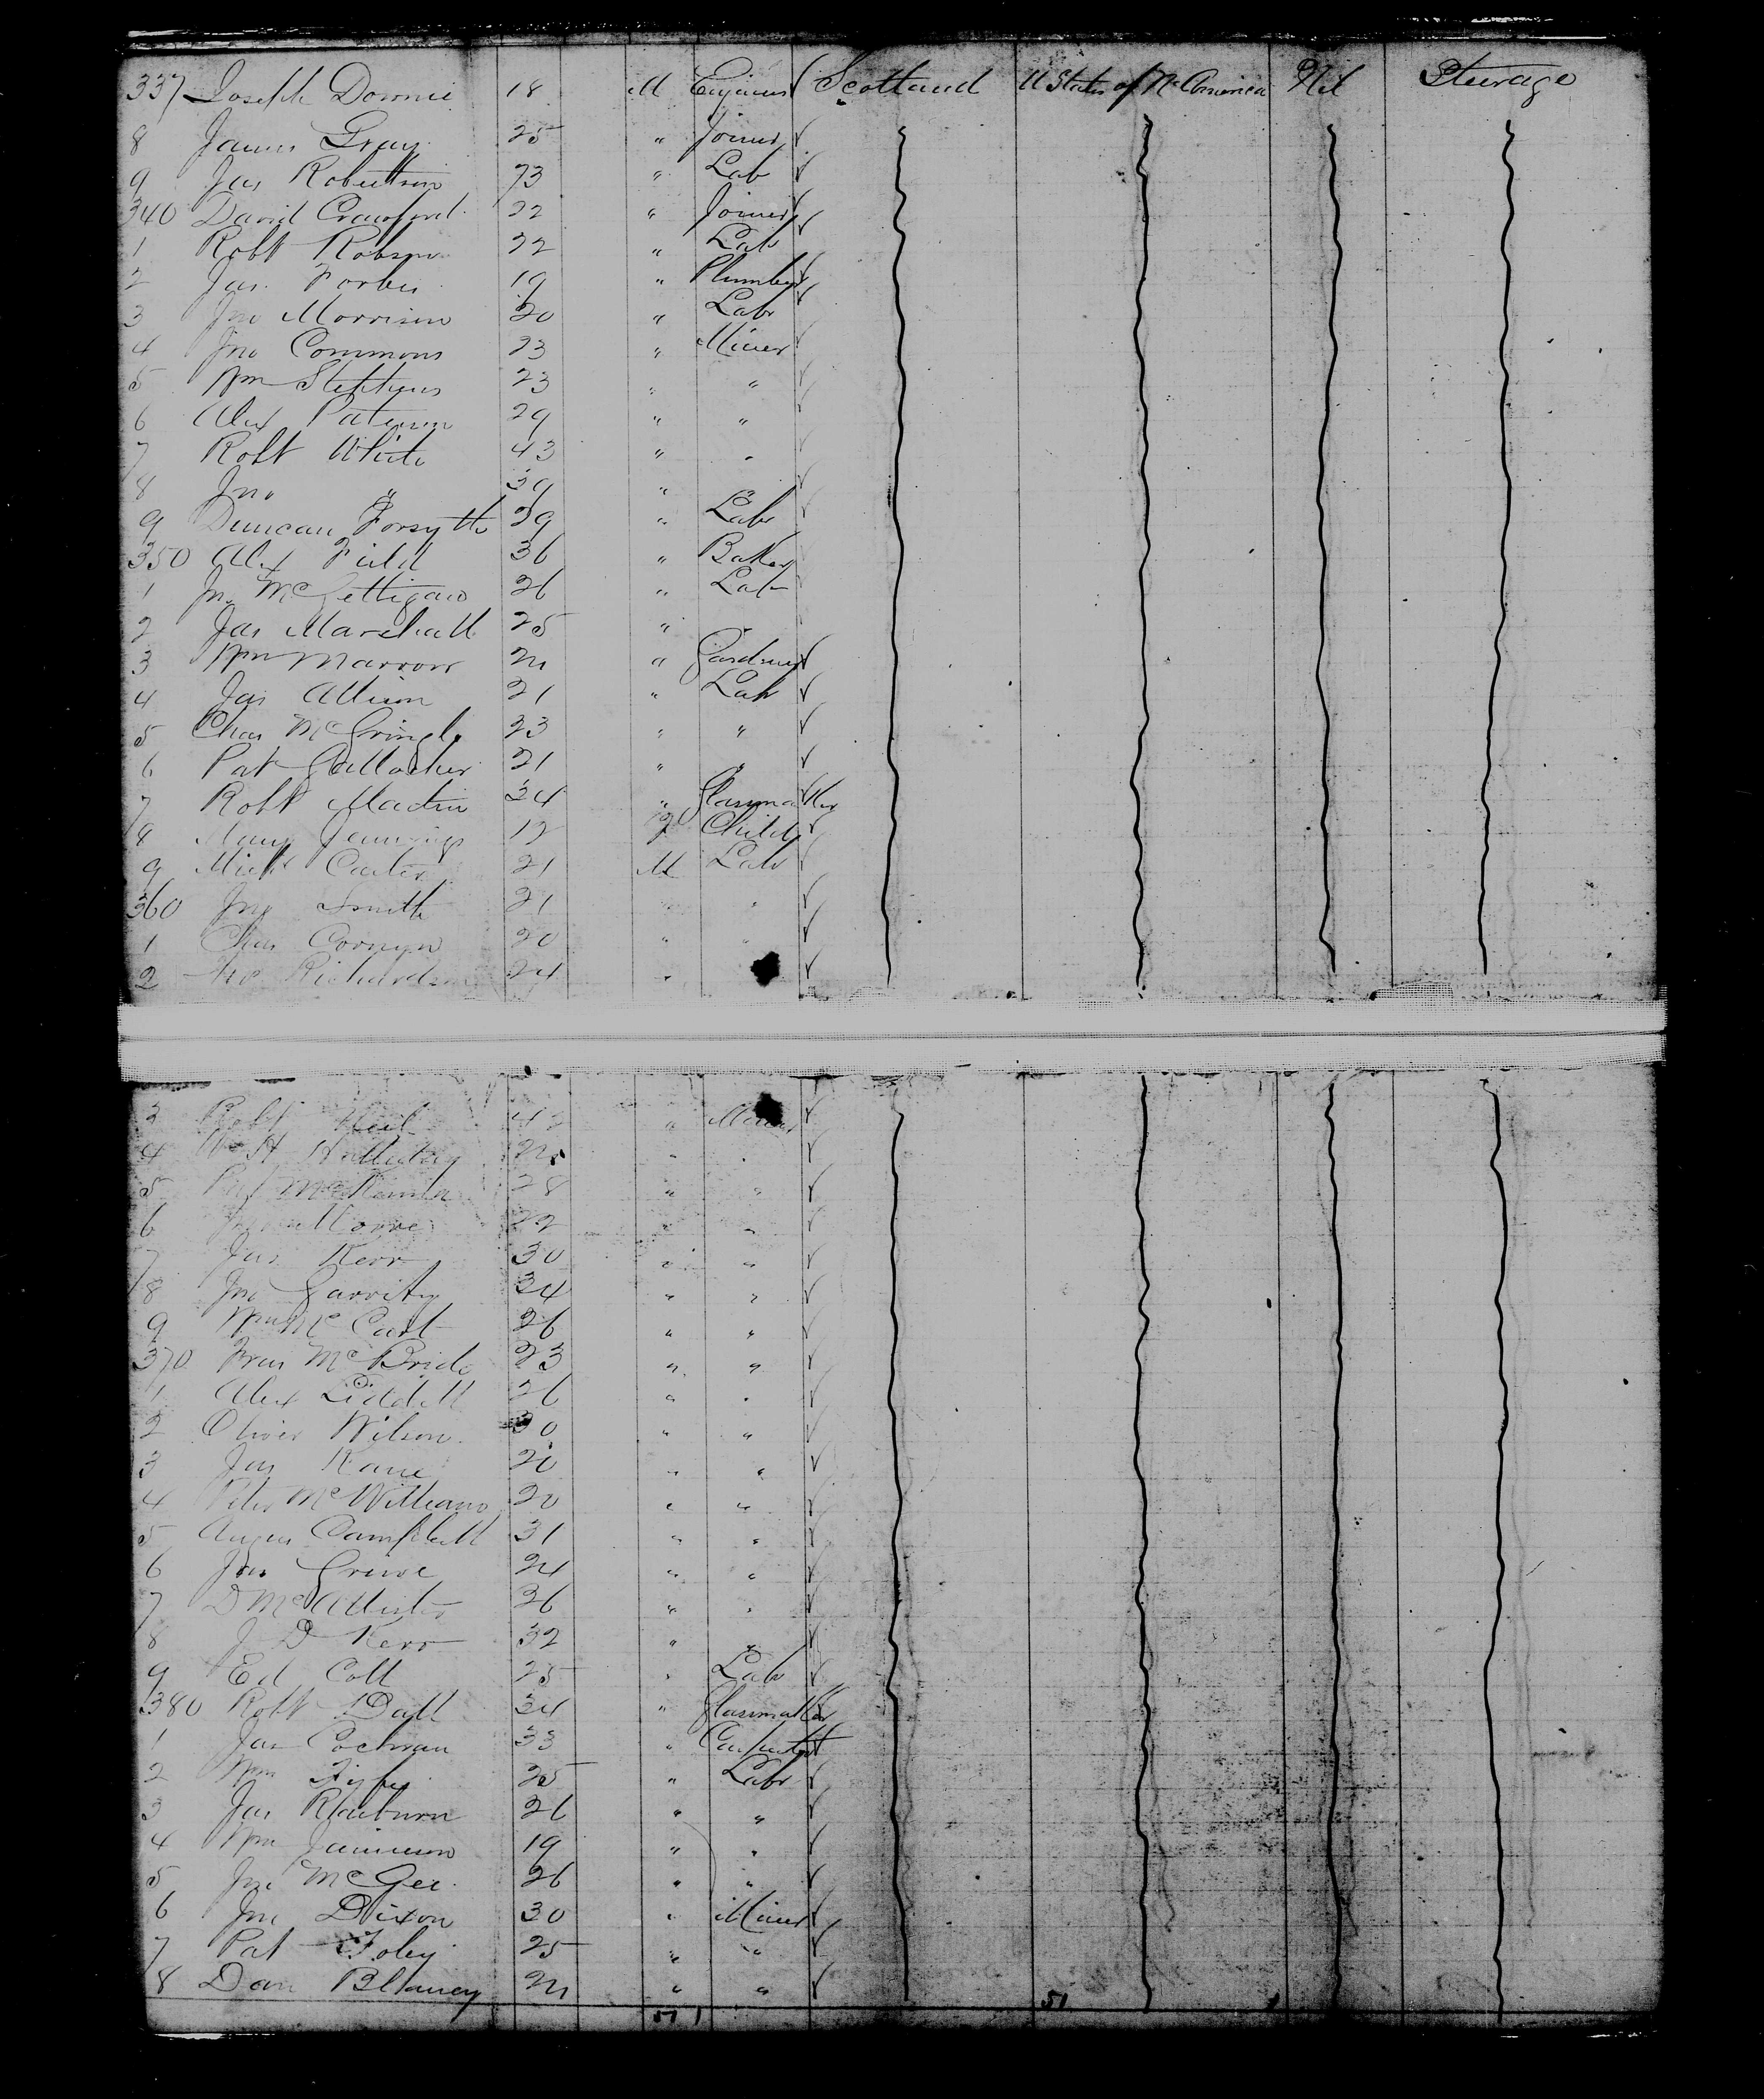 337 Joseph Downie 18 M Engineer Scotland U States of N America Nil Steerage
8 James Gray 25 " Joiner
9 Jas Robertson 23 " Lab
340 David Crawford 22 " Joiner
1 Robt Robson 22 " Labr
2 Jas Forbes 19 " Plumber
3 Jno Morrison 20 " Labr
4 Jno Commons 23 " Miner
5 Wm Stephens 23 " "
6 Alex Paterson 29 " "
7 Robt White 43 " "
8 Jno " 39 " "
9 Duncan Forsyth 39 " Labr
350 Alex Field 36 " Baker
1 Jno McGettigan 26 " Labr
2 Jas Marshall 25 " "
3 Wm Marrow 24 " Gardner
4 Jas Allison 21 " Labr
5 Chas McGringle 23 " "
6 Pat Gallocher 21 " "
7 Robt Martin 34 " Glassmaker
8 Mary Jennings 12 F Child
9 Michl Carter 21 M Labr
360 Jno Smith 21 " "
1 Chas Cornyn 20 " "
2 Richardson 24 "
3 Robt Neil " Miner
4 " "
5 Pat McKenna 28 " "
6 22 " "
7 Jas Kerr 30 " "
8 Jno Garrity 34 " "
9 Wm McCart 26 " "
370 Fras McBride 23 " "
1 Alex Liddell 26 " "
2 Oliver Wilson 30 " "
3 Jas Kane 20 " "
4 Peter McWilliams 20 " "
5 Angus Campbell 31 " "
6 Jas 24 " "
7 D McAllister 36 " "
8 J D Kerr 32 " "
9 Ed Coll 25 " Labr
380 Robt Dall 34 " Glassmaker
1 Jas Cochran 33 " Carpenter
2 Wm 25 " Labr
3 Jas Raeburn 26 " "
4 Wm Jamieson 19 " "
5 Jno McGee 26 " "
6 Jno Dixon 30 " Miner
7 Pat Foley 25 " "
8 Dan Blaney 24 " "
51 1 51